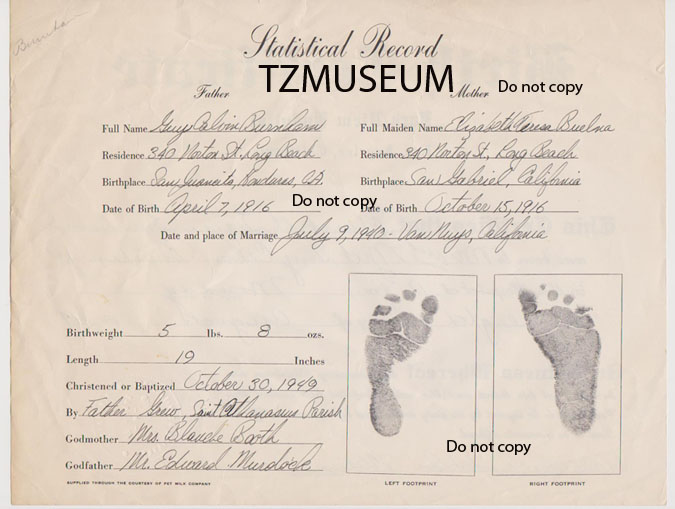 Statistical Record
TZMUSEUM
Father Mother Do not copy
Full Name Guy Calvin Burnham Full Maiden Name Elizabeth Teresa Buelna
Residence 340 Norton St, Long Beach Residence 340 Norton St, Long Beach
Birthplace San Juancito, Honduras, CA. Birthplace San Gabriel, California
Do not copy
Date of Birth April 7, 1916 Date of Birth October 15, 1916
Date and place of Marriage July 9, 1940 - Van Nuys, California
Birthweight 5 lbs. 8 ozs.
Length 19 Inches
Christened or Baptized October 30, 1949
By Father Grew, Saint Athanasius Parish
Godmother Mrs. Blanche Booth
Do not copy
Godfather Mr. Edward Murdock
SUPPLIED THROUGH THE COURTESY OF PET MILK COMPANY
LEFT FOOTPRINT RIGHT FOOTPRINT